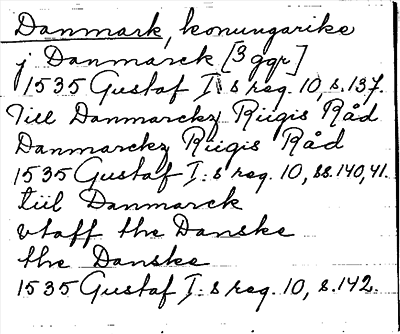 Danmark, konungarike
j Danmarck [3 ggr]
1535 Gustaf I:s reg. 10, s. 137.
Till Danmarckz Riigis Råd
Danmarckz Riigis Råd
1535 Gustaf I:s reg. 10, ss. 140, 41.
tiil Danmarck
vtaff the Danske
the Danske
1535 Gustaf I:s reg. 10, s. 142.